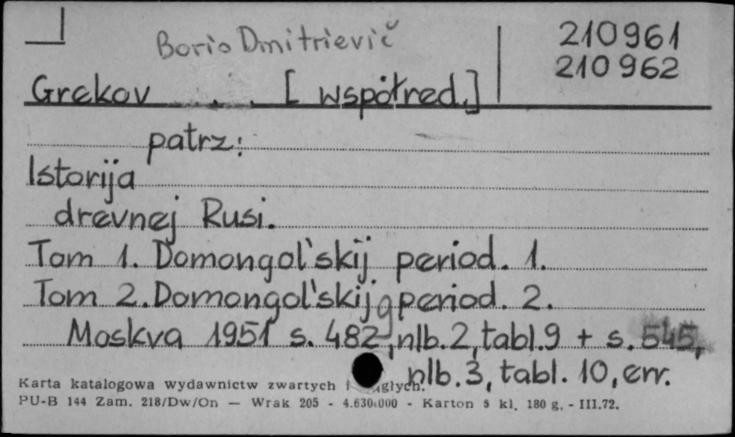 Boris Dmitrievič
210961
210962
Grekov . . [współred.]
patrz:
Istorija
drevnej Rusi.
Tom 1. Domongol'skij period. 1.
Tom 2. Domongol'skij period. 2.
Moskva 1951 s. 482, nlb. 2, tabl. 9 + s. 545,
nlb. 3, tabl. 10, err.
Karta katalogowa wydawnictw zwartych i
PU-B 144 Zam. 218/Dw/On — Wrak 205 - 4.630.000 - Karton 5 kl. 180 g. - III.72.